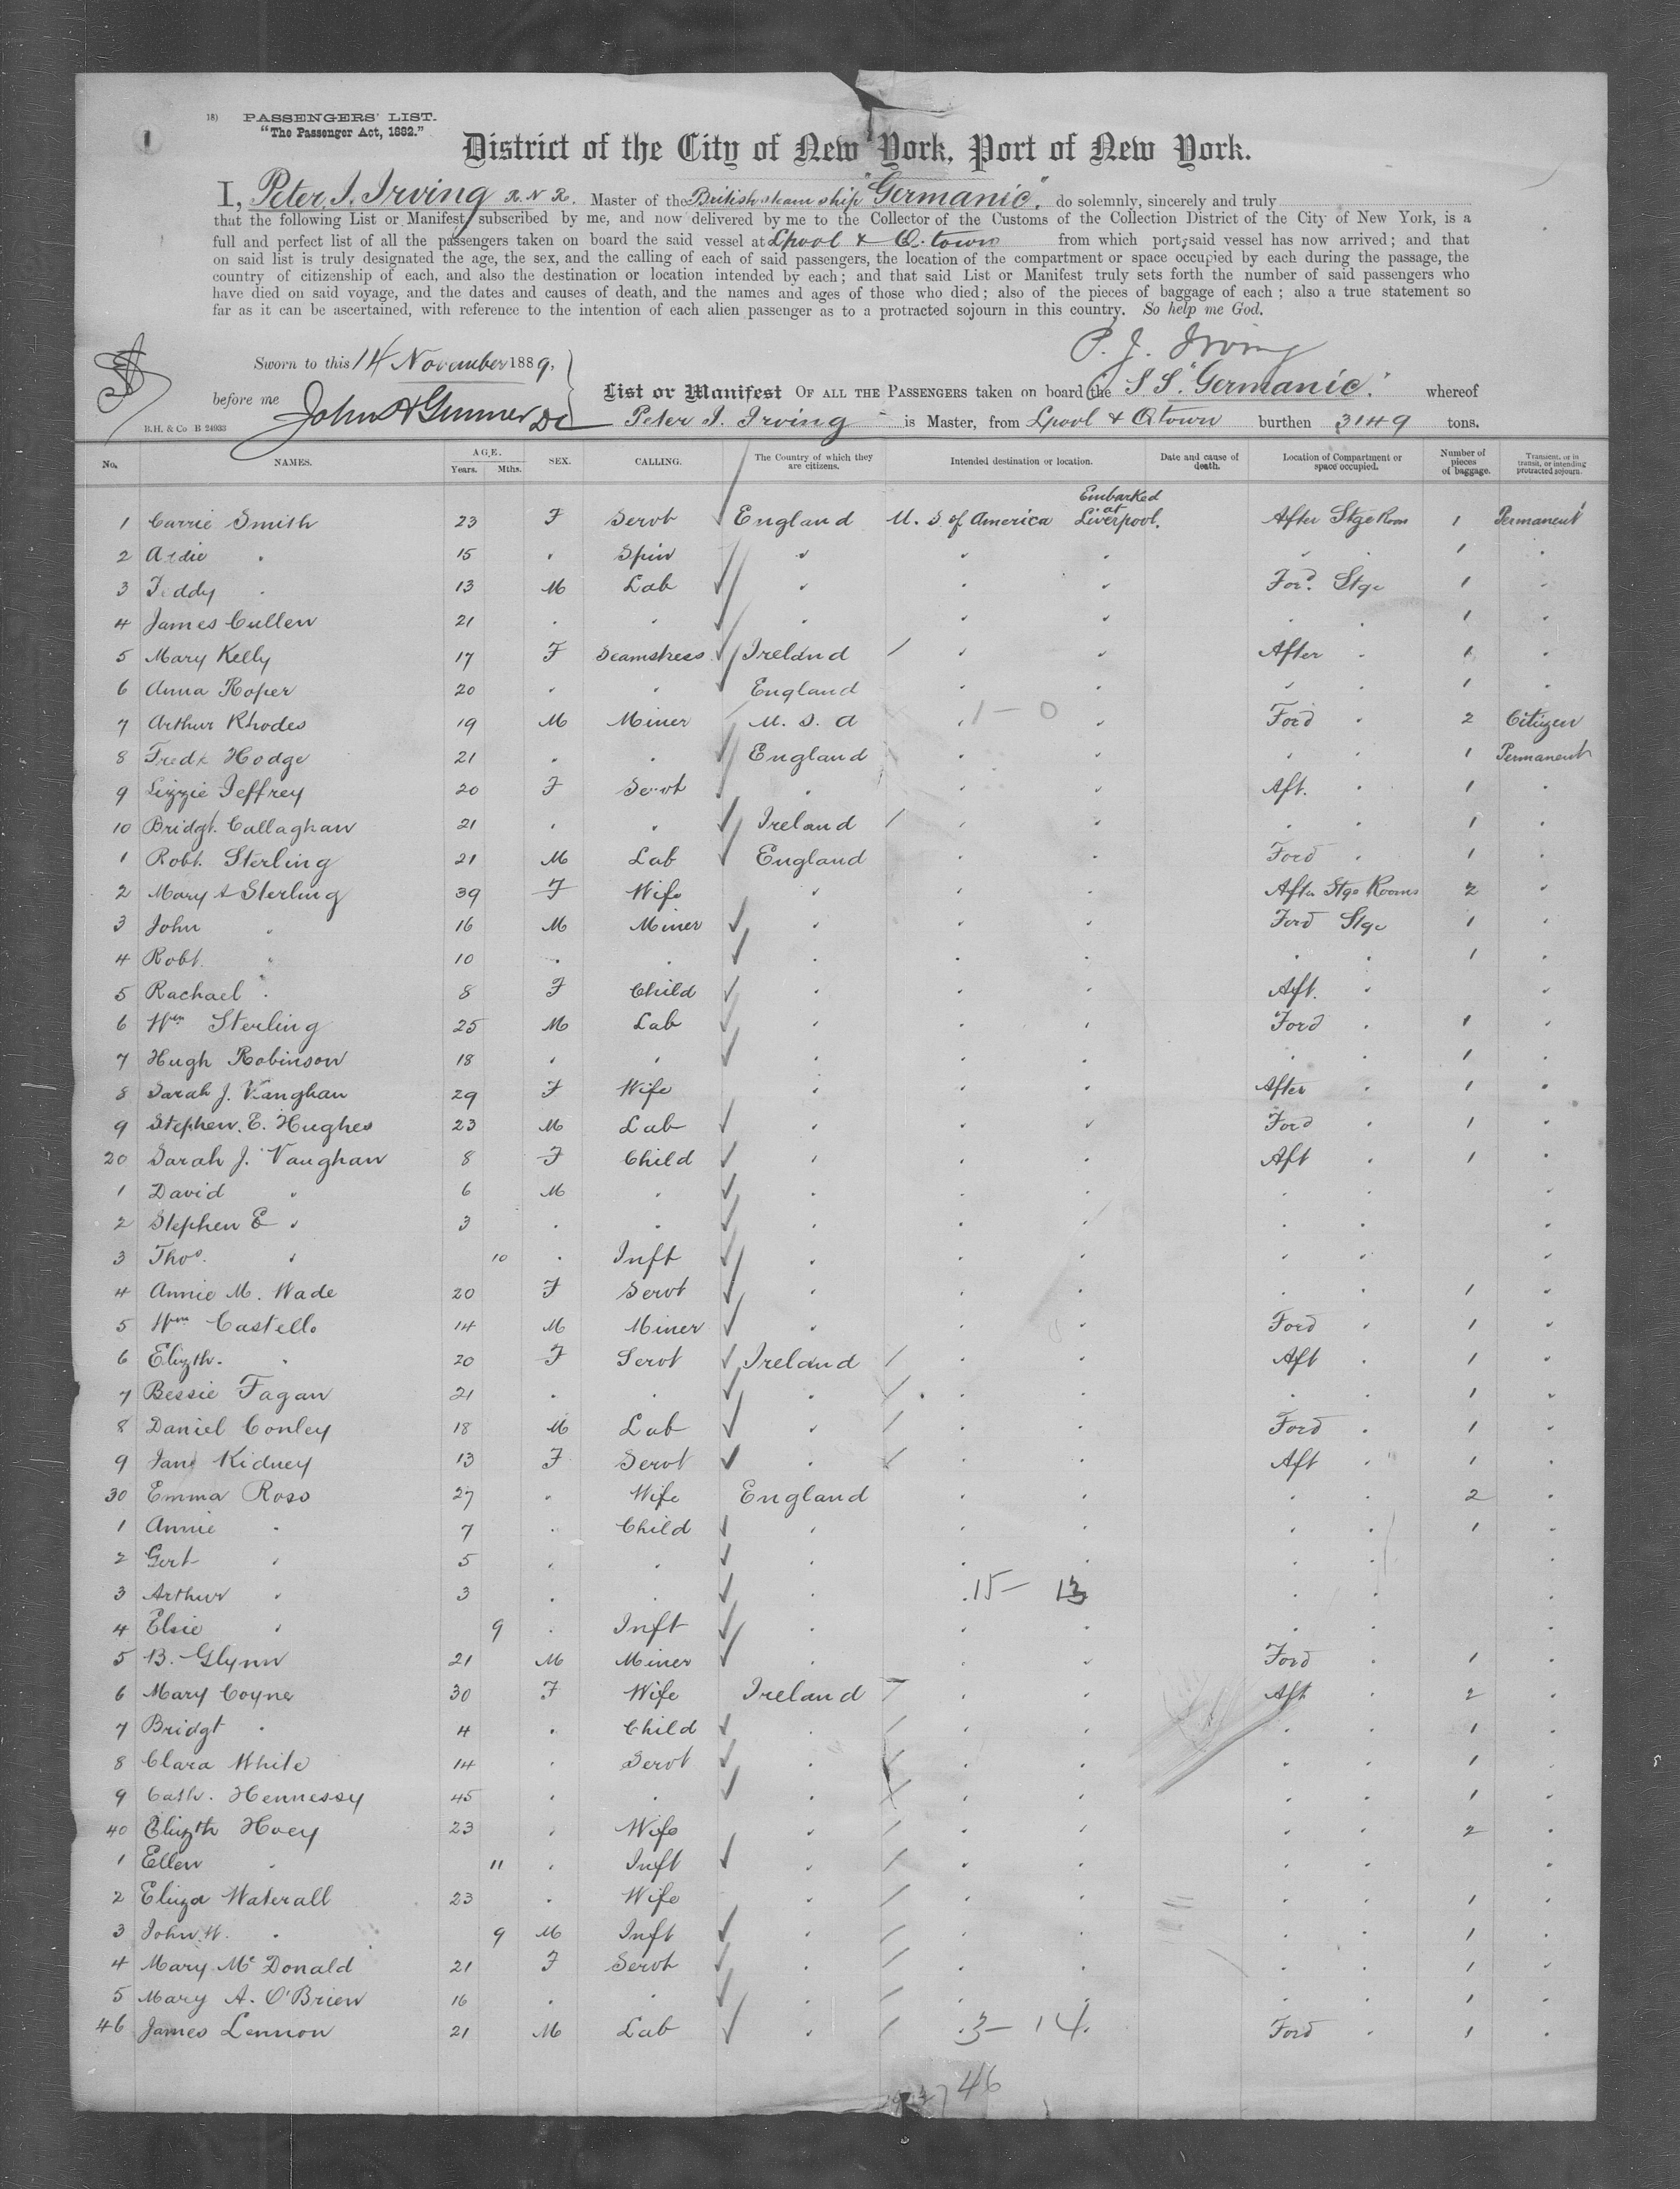 18) PASSENGERS' LIST.
"The Passenger Act, 1882."
1
District of the City of New York, Port of New York.
I, Peter J. Irving R.N.R. Master of the British steam ship "Germanic". do solemnly, sincerely and truly
that the following List or Manifest, subscribed by me, and now delivered by me to the Collector of the Customs of the Collection District of the City of New York, is a
full and perfect list of all the passengers taken on board the said vessel at Lpool & Q.town from which port, said vessel has now arrived; and that
on said list is truly designated the age, the sex, and the calling of each of said passengers, the location of the compartment or space occupied by each during the passage, the
country of citizenship of each, and also the destination or location intended by each; and that said List or Manifest truly sets forth the number of said passengers who
have died on said voyage, and the dates and causes of death, and the names and ages of those who died; also of the pieces of baggage of each; also a true statement so
far as it can be ascertained, with reference to the intention of each alien passenger as to a protracted sojourn in this country. So help me God.
P. J. Irving
Sworn to this 14 November 1889,
before me John A Gunner DC
B.H. & Co B 24933
List or Manifest OF ALL THE PASSENGERS taken on board the S S. "Germanic." whereof
Peter J. Irving is Master, from Lpool & Qtown burthen 3149 tons.
No. NAMES. AGE. Years. Mths. SEX. CALLING. The Country of which they are citizens. Intended destination or location. Date and cause of death. Location of Compartment or space occupied. Number of pieces of baggage. Transient, or in transit, or intending protracted sojourn.
1 Carrie Smith 23 F Servt England U. S. of America Embarked at Liverpool. After Stge Room 1 Permanent
2 Addie " 15 " Spin " " " " 1 "
3 Teddy " 13 M Lab " " " Ford. Stge 1 "
4 James Cullen 21 " " " " " " " 1 "
5 Mary Kelly 17 F Seamstress Ireland " " After " 1 "
6 Anna Roper 20 " " England " " " " 1 "
7 Arthur Rhodes 19 M Miner U. S. A " 1 - 0 " Ford " 2 Citizen
8 Fredk Hodge 21 " " England " " " " 1 Permanent
9 Lizzie Jeffrey 20 F Servt " " " Aft. " 1 "
10 Bridgt. Callaghan 21 " " Ireland " " " " 1 "
1 Robt. Sterling 21 M Lab England " " Ford " 1 "
2 Mary A Sterling 39 F Wife " " " After Stge Rooms 2 "
3 John " 16 M Miner " " " Ford Stge 1 "
4 Robt. " 10 " " " " " " " 1 "
5 Rachael " 8 F Child " " " Aft. " "
6 Wm Sterling 25 M Lab " " " Ford " 1 "
7 Hugh Robinson 18 " " " " " " 1 "
8 Sarah J. Vaughan 29 F Wife " " " After " 1 "
9 Stephen. E. Hughes 23 M Lab " " " Ford " 1 "
20 Sarah J. Vaughan 8 F Child " " " Aft " 1 "
1 David " 6 M " " " " " " "
2 Stephen E " 3 " " " " " " " "
3 Thos. " 10 " Inft " " " " " "
4 Annie M. Wade 20 F Servt " " " " " 1 "
5 Wm Castello 14 M Miner " " " Ford " 1 "
6 Elizth. " 20 F Servt Ireland " " Aft " 1 "
7 Bessie Fagan 21 " " " " " " " 1 "
8 Daniel Conley 18 M Lab " " " Ford " 1 "
9 Jane Kidney 13 F Servt " " " Aft " 1 "
30 Emma Ross 27 " Wife England " " " " 2 "
1 Annie " 7 " Child " " " " " 1 "
2 Gert " 5 " " " " " " " "
3 Arthur " 3 " " " 15 - 13 " " "
4 Elsie " 9 " Inft " " " " " "
5 B. Glynn 21 M Miner " " " Ford " 1 "
6 Mary Coyne 30 F Wife Ireland " " Aft " 2 "
7 Bridgt " 4 " Child " " " " " 1 "
8 Clara White 14 " Servt " " " " " 1 "
9 Cath. Hennessy 45 " " " " " " " 1 "
40 Elizth Hoey 23 " Wife " " " " " 2 "
1 Ellen " 11 " Inft " " " " " "
2 Eliza Waterall 23 " Wife " " " " " 1 "
3 John. W. " 9 M Inft " " " " " 1 "
4 Mary Mc Donald 21 F Servt " " " " " 1 "
5 Mary A. O'Brien 16 " " " " " " " 1 "
46 James Lennon 21 M Lab " 3 - 14 Ford " 1 "
46